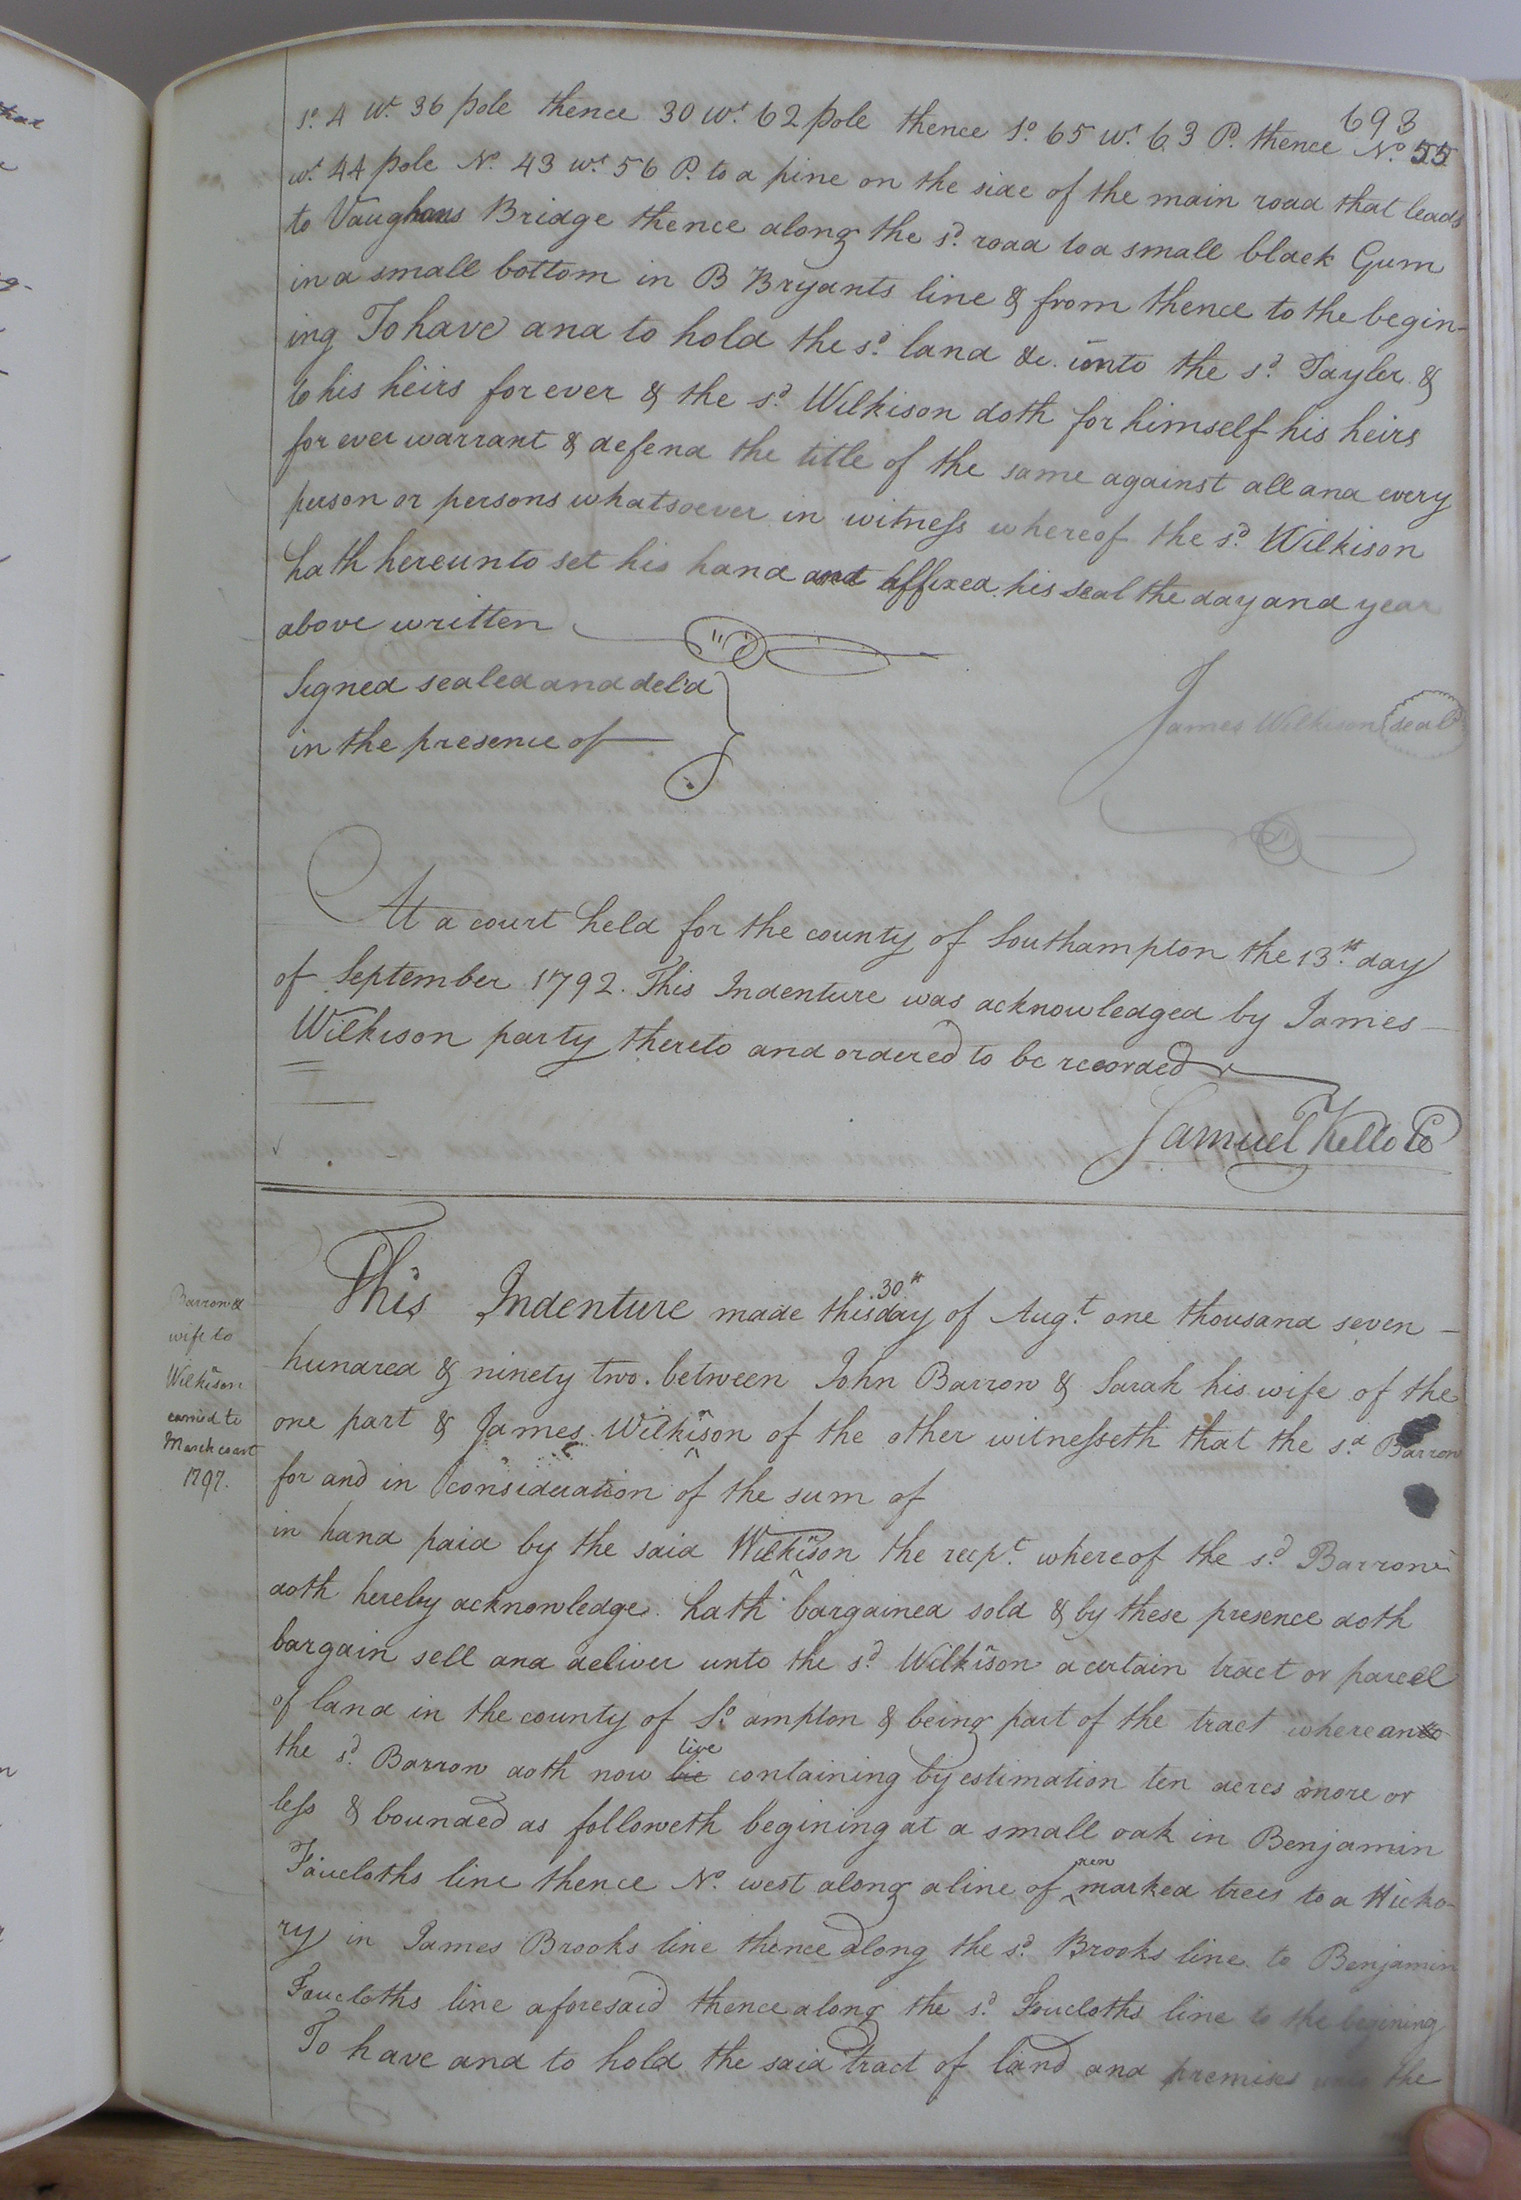 693
So. 4 Wt. 36 pole thence 30 Wt. 62 pole thence So. 65 Wt. 63 P. thence No. 55
Wt. 44 pole No. 43 Wt. 56 P. to a pine on the side of the main road that leads
to Vaughans Bridge thence along the sd. road to a small black Gum
in a small bottom in B Bryants line & from thence to the begin-
ing To have and to hold the sd. land &c. unto the sd. Tayler &
to his heirs for ever & the sd. Wilkison doth for himself his heirs
for ever warrant & defend the title of the same against all and every
person or persons whatsoever in witness whereof the sd. Wilkison
hath hereunto set his hand and affixed his seal the day and year
above written
Signed sealed and deld
in the presence of
James Wilkison seal
At a court held for the county of Southampton the 13th. day
of September 1792. This Indenture was acknowledged by James
Wilkison party thereto and ordered to be recorded
Samuel Kello CC
Barron &
wife to
Wilkinson
carried to
March court
1797.
This Indenture made this 30th day of Augt. one thousand seven
hundred & ninety two. between John Barron & Sarah his wife of the
one part & James Wilkinson of the other witnesseth that the sd. Barron
for and in consideration of the sum of
in hand paid by the said Wilkinson the recpt. whereof the sd. Barron
doth hereby acknowledge. hath bargained sold & by these presence doth
bargain sell and deliver unto the sd. Wilkinson a certain tract or parcel
of land in the county of So. ampton & being part of the tract where
the sd. Barron doth now live containing by estimation ten acres more or
less & bounded as followeth begining at a small oak in Benjamin
Faucloths line thence No. west along a line of new marked trees to a Hicko-
ry in James Brooks line thence along the sd. Brooks line to Benjamin
Faucloths line aforesaid thence along the sd. Foucloths line to the begining
To have and to hold the said tract of land and premises unto the